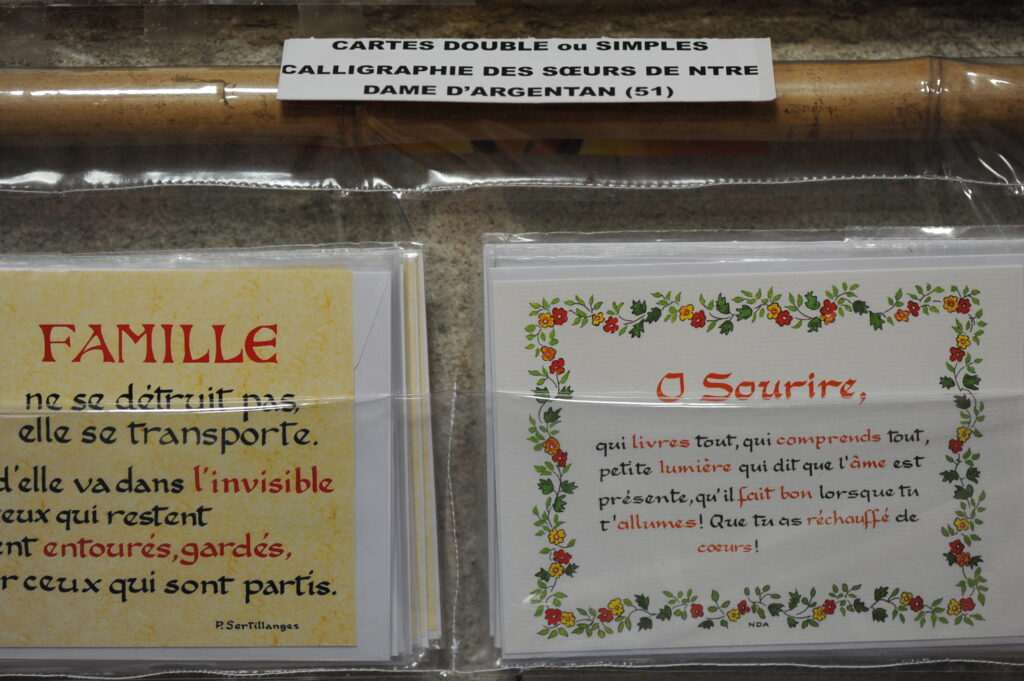 CARTES DOUBLE ou SIMPLES
CALLIGRAPHIE DES SŒURS DE NTRE
DAME D'ARGENTAN (51)
FAMILLE
ne se détruit pas,
elle se transporte.
d'elle va dans l'invisible
ceux qui restent
entourés, gardés,
ceux qui sont partis.
P. Sertillanges
O Sourire,
qui livres tout, qui comprends tout,
petite lumière qui dit que l'âme est
présente, qu'il fait bon lorsque tu
t'allumes! Que tu as réchauffé de
cœurs!
NDA